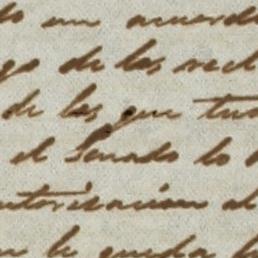 lo un acuerdo
go de las recl
de las que tuv
el Senado lo
autorizacion al
le queda